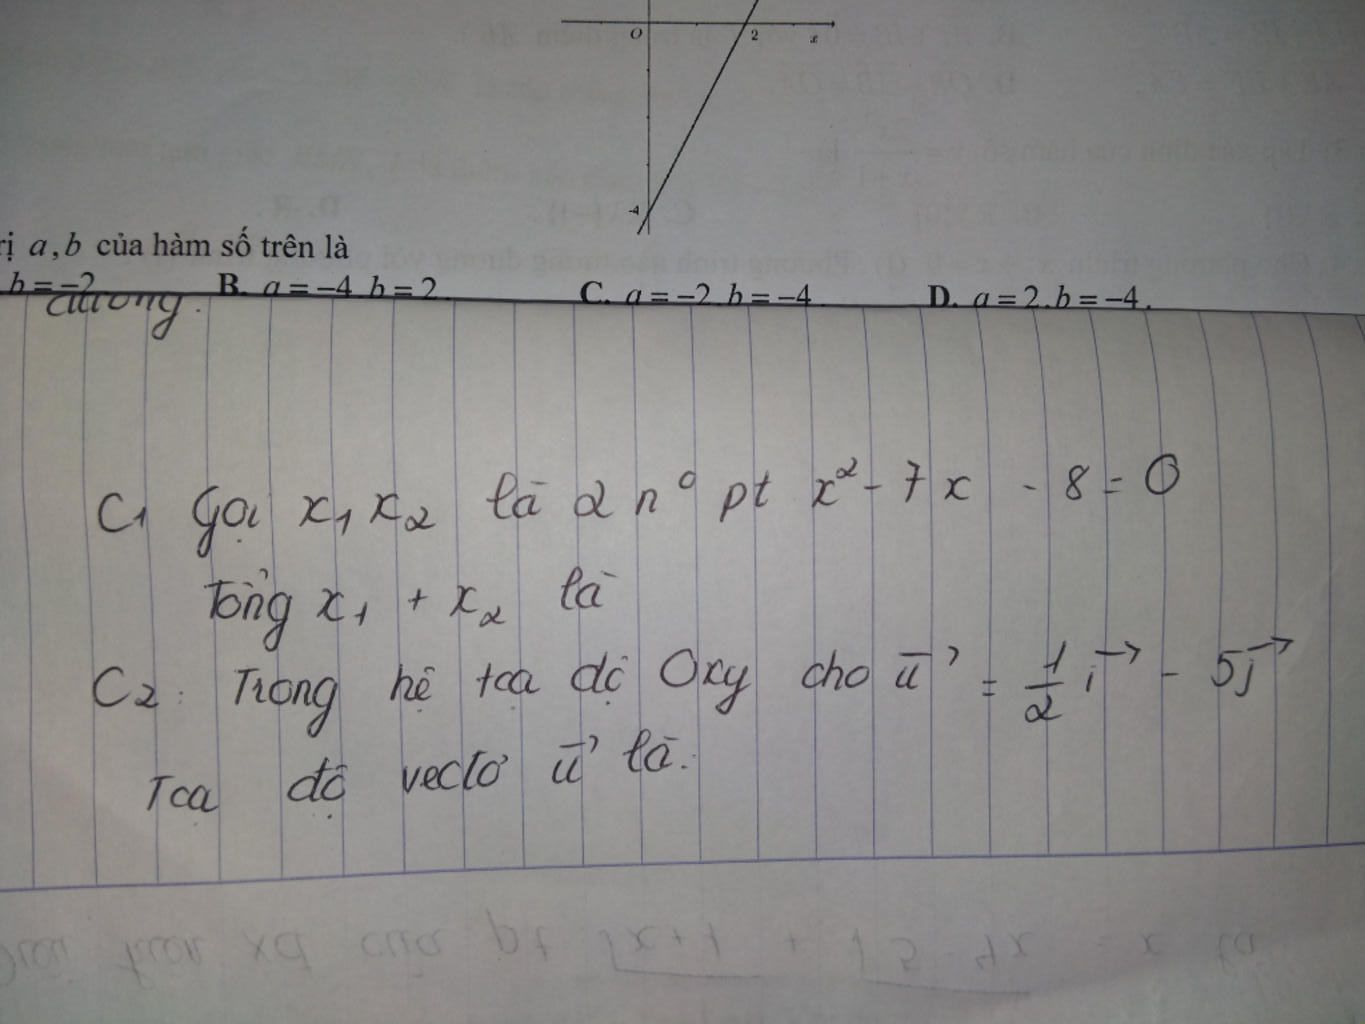 O 2 x
-4
rị a, b của hàm số trên là
b = -2 B. a = -4, b = 2. C. a = -2, b = -4. D. a = 2, b = -4.
dương.
C1 Gọi x₁ x₂ là 2 n⁰ pt x² - 7x - 8 = 0
Tổng x₁ + x₂ là
C2: Trong hệ tọa độ Oxy cho u⃗ = 1/2 i⃗ - 5j⃗
Tọa độ vectơ u⃗ là: